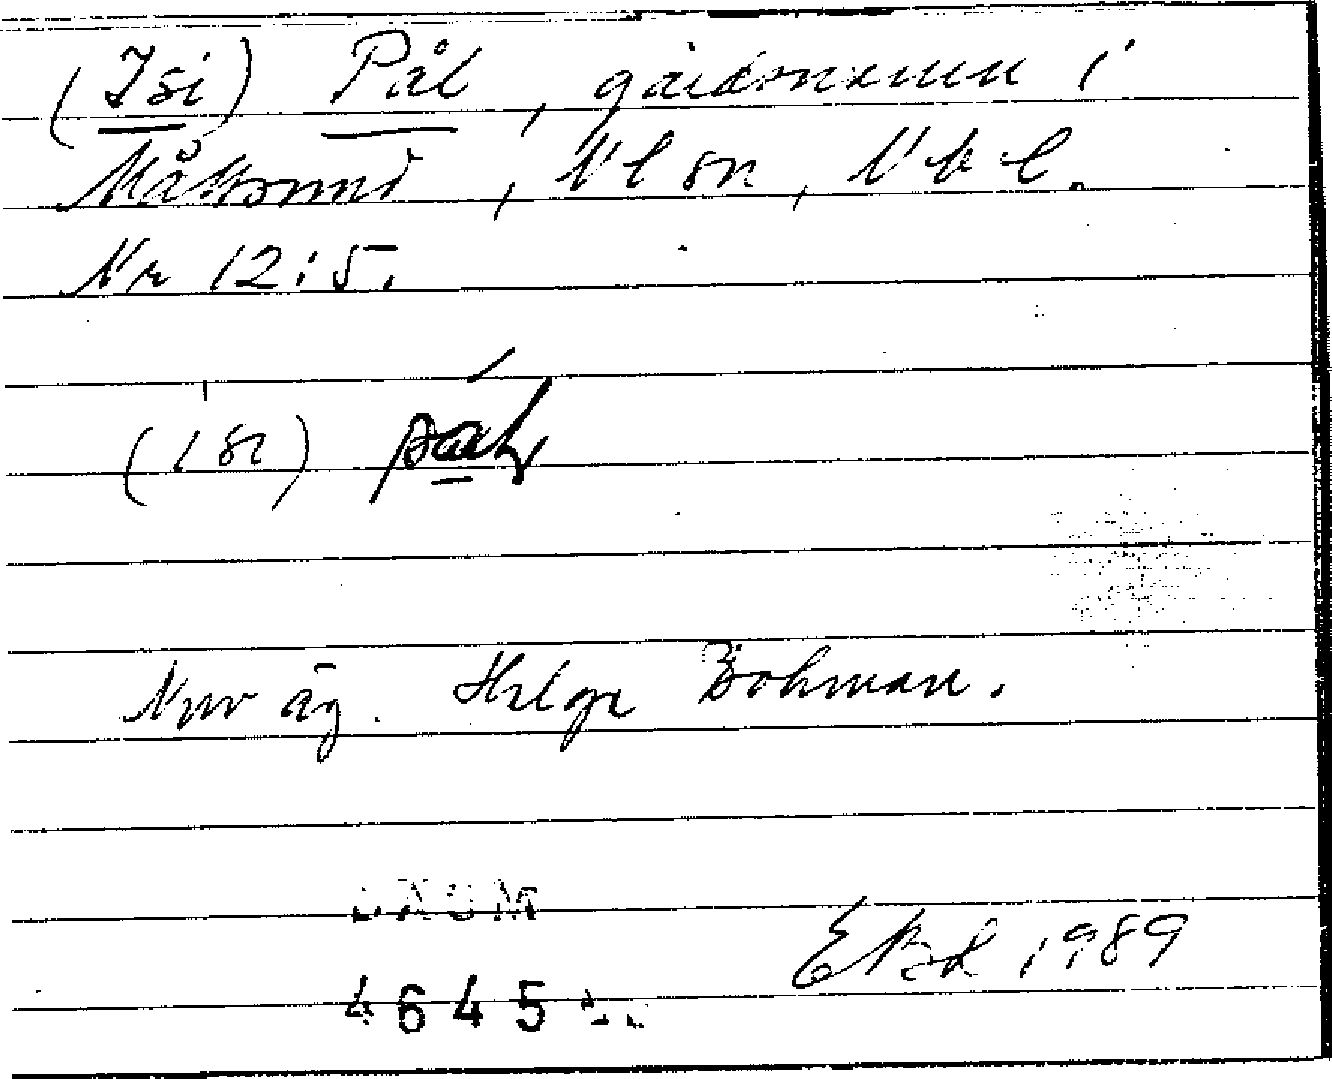 (Isi) Pål, gårdsnamn i
Måttsund, Nl sn, Nbl.
Nr 12:5.
(isi)
Nuv äg. Helge Bohman.
DAUM
4645
1989